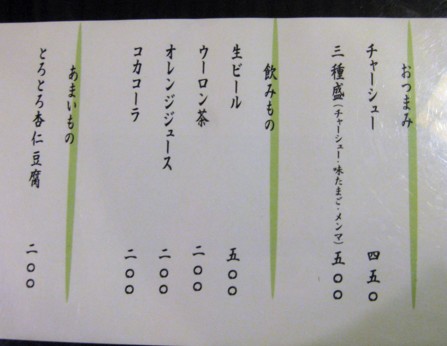 おつまみ
チャーシュー 四五〇
三種盛(チャーシュー・味たまご・メンマ) 五〇〇
飲みもの
生ビール 五〇〇
ウーロン茶 二〇〇
オレンジジュース 二〇〇
コカコーラ 二〇〇
あまいもの
とろとろ杏仁豆腐 二〇〇